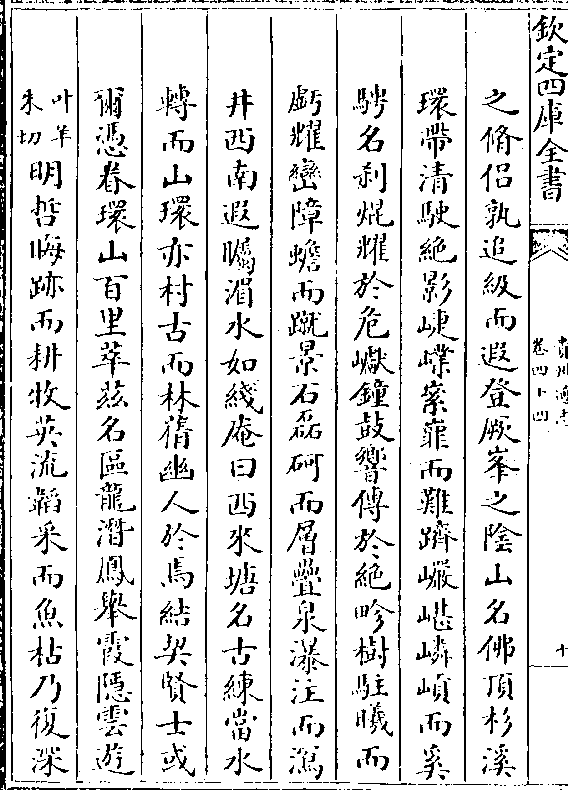 欽定四庫全書
貴州通志
卷四十四
十
之脩侣孰追級而遐登厥峯之陰山名佛頂杉溪
環帶清駛絕影崨嶫寀雍而難躋巖㟥嶙峋而奚
騁名刹焜耀於危巘鐘鼓響傳於絕畛樹駐曦而
虧耀巒障蟾而蹴景石磊砢而層疊泉瀑注而瀉
井西南遐矚湄水如綫庵曰西來塘名古練當水
轉而山環亦村古而林蒨幽人於焉結契賢士或
爾憑眷環山百里萃兹名區龍潛鳳舉霞隱雲遊
叶羊朱切明哲晦跡而耕牧英流韜采而魚枯乃復深